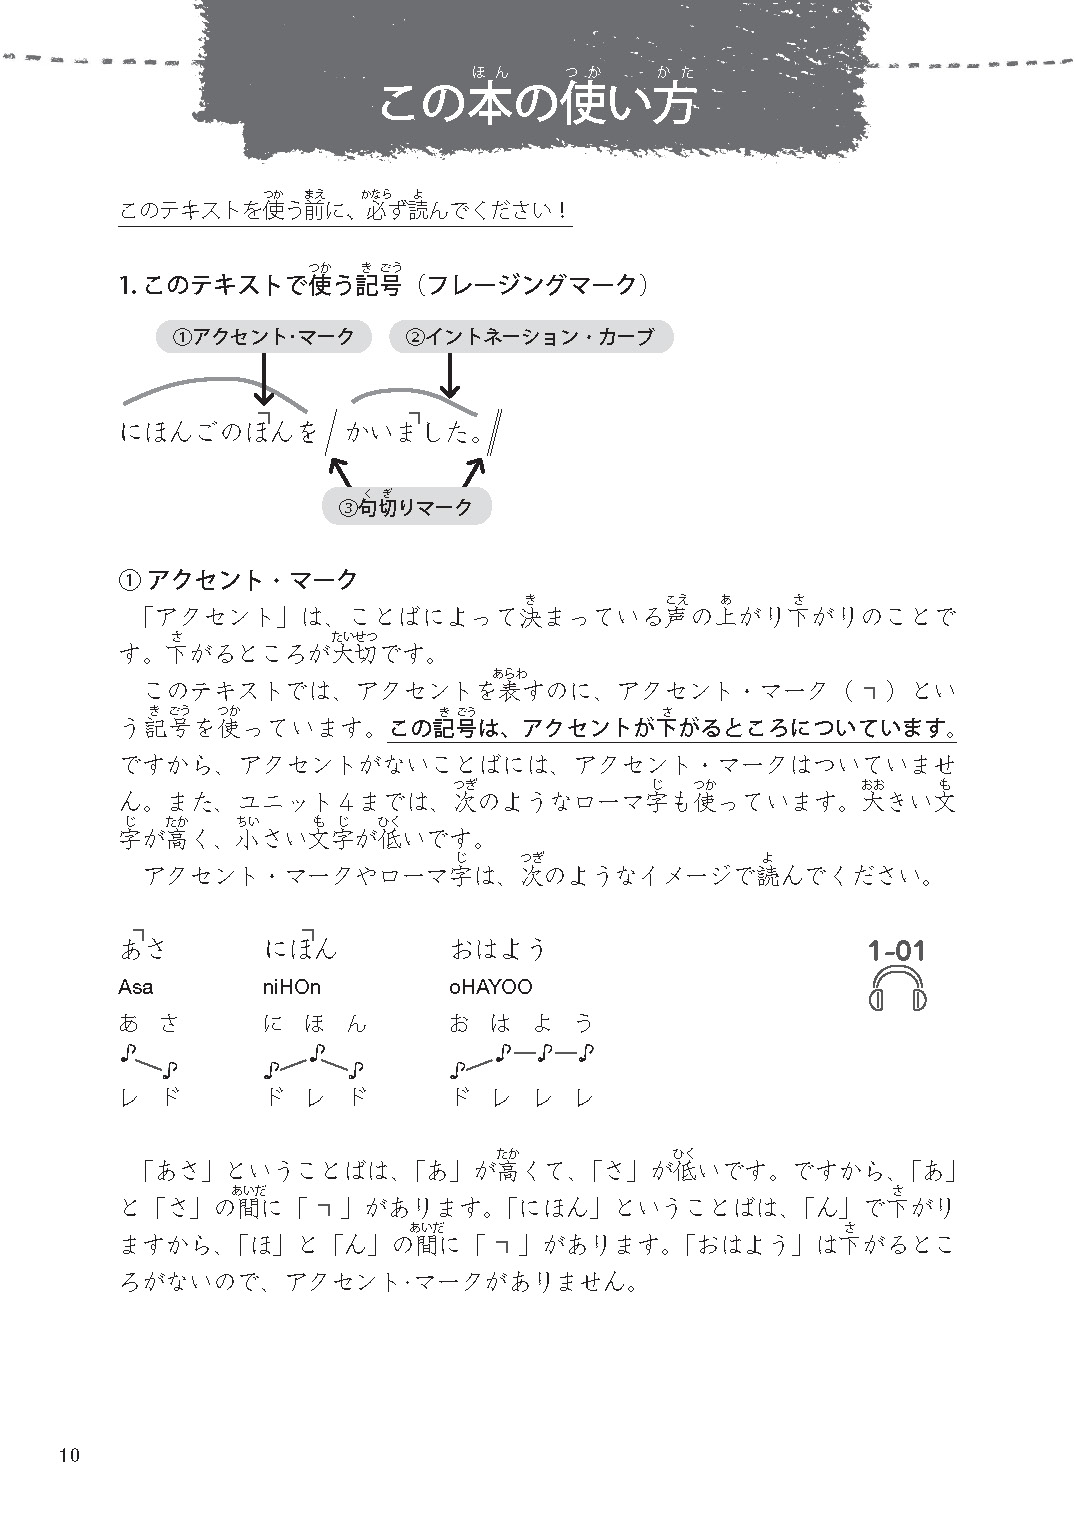 この本の使い方
このテキストを使う前に、必ず読んでください！
1. このテキストで使う記号（フレージングマーク）
①アクセント・マーク　②イントネーション・カーブ
にほんごのほ┐んを／かいま┐した。∥
③句切りマーク
① アクセント・マーク
「アクセント」は、ことばによって決まっている声の上がり下がりのことで
す。下がるところが大切です。
このテキストでは、アクセントを表すのに、アクセント・マーク（ ┐ ）とい
う記号を使っています。この記号は、アクセントが下がるところについています。
ですから、アクセントがないことばには、アクセント・マークはついていませ
ん。また、ユニット４までは、次のようなローマ字も使っています。大きい文
字が高く、小さい文字が低いです。
アクセント・マークやローマ字は、次のようなイメージで読んでください。
あ┐さ　にほ┐ん　おはよう　1-01
Asa　niHOn　oHAYOO
あ さ　に ほ ん　お は よ う
♪ ♪　♪ ♪ ♪　♪ ♪ ♪ ♪
レ ド　ド レ ド　ド レ レ レ
「あさ」ということばは、「あ」が高くて、「さ」が低いです。ですから、「あ」
と「さ」の間に「 ┐ 」があります。「にほん」ということばは、「ん」で下がり
ますから、「ほ」と「ん」の間に「 ┐ 」があります。「おはよう」は下がるとこ
ろがないので、アクセント・マークがありません。
10